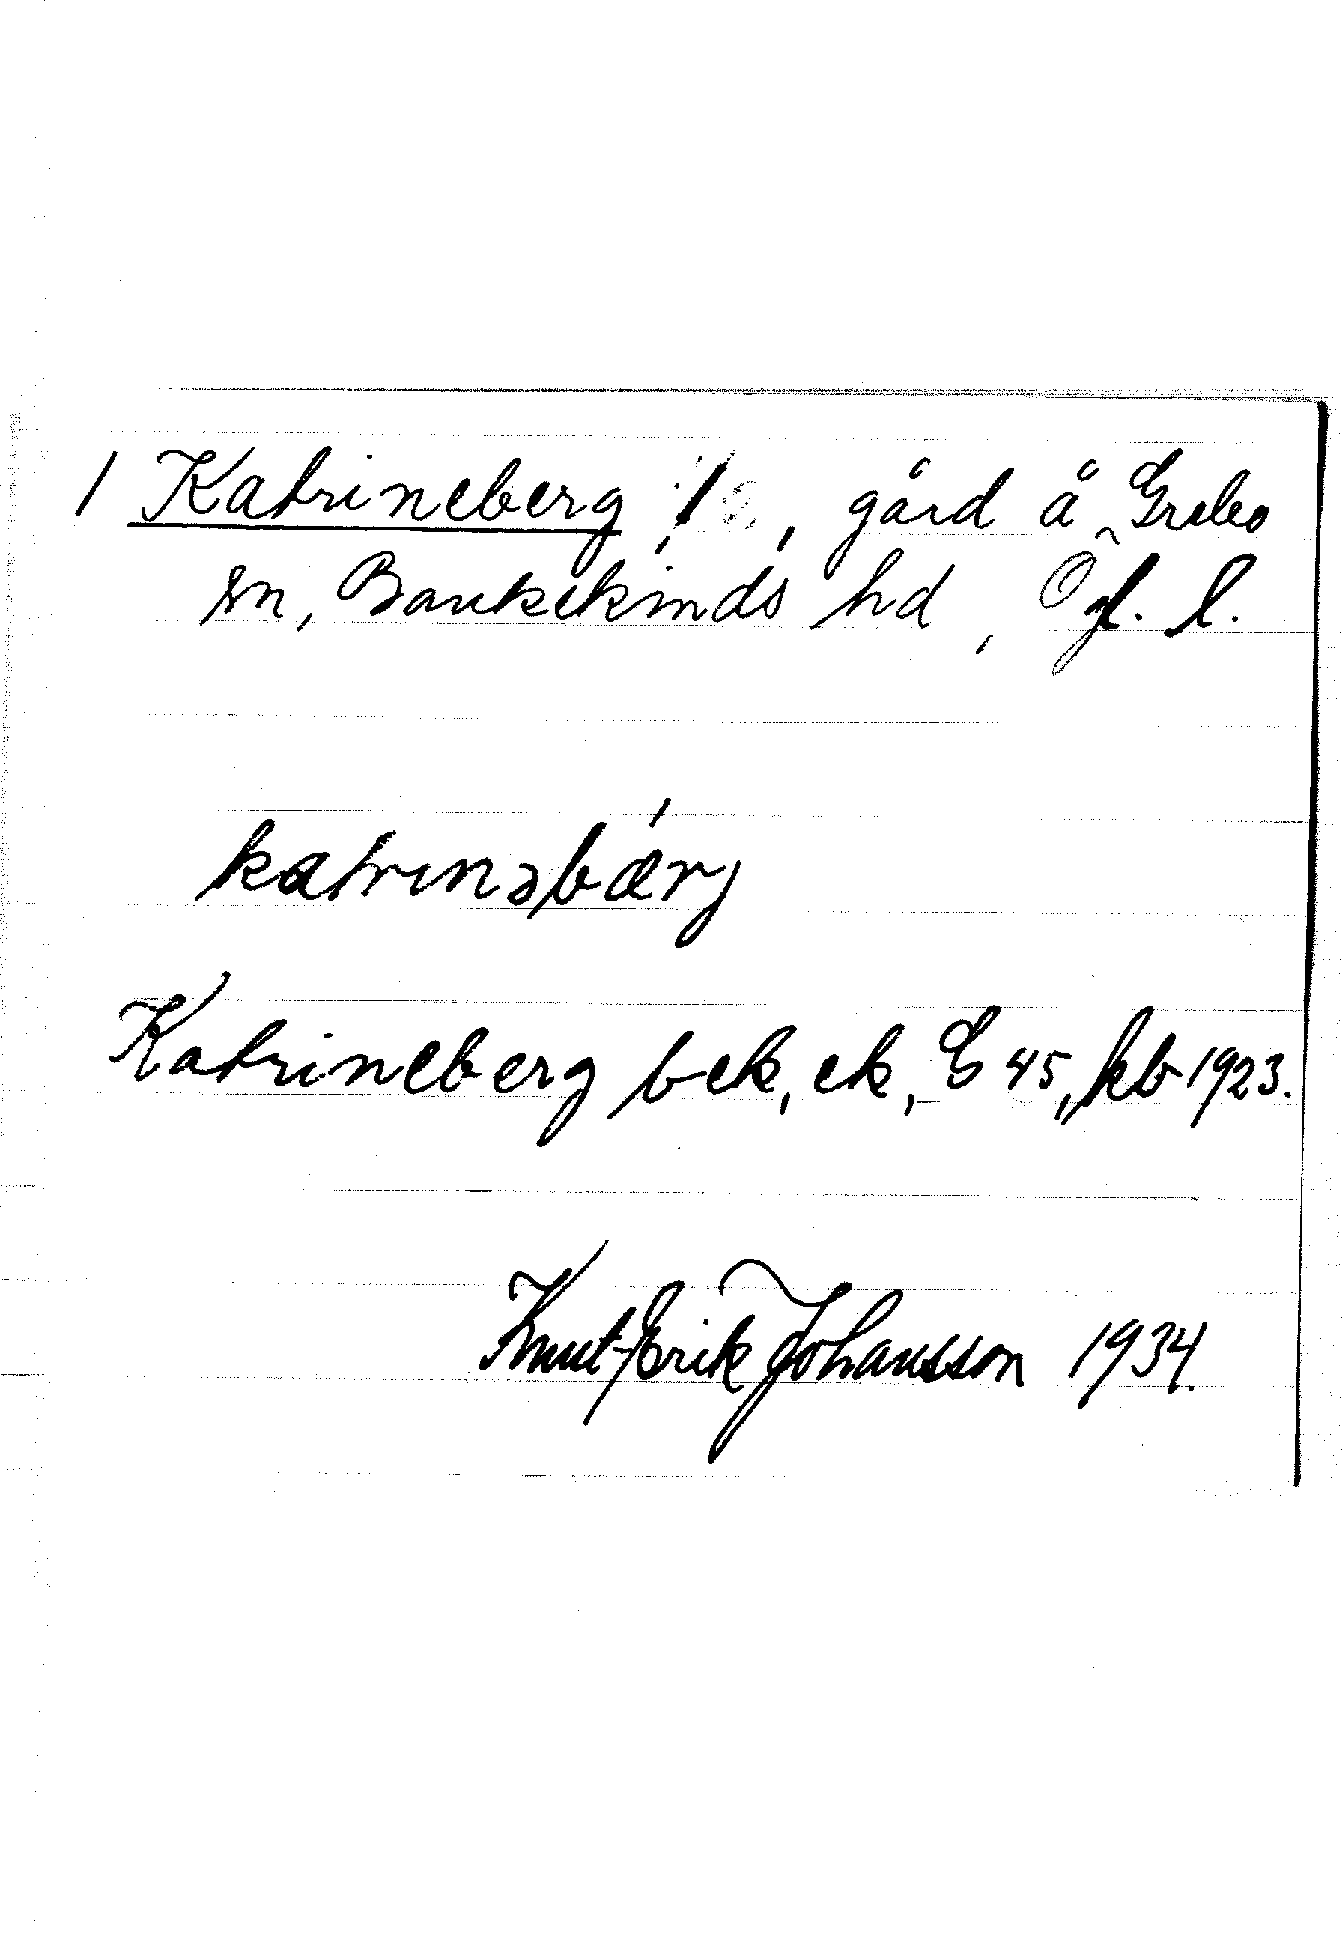 1 Katrineberg 1/2, gård å Grebo
sn, Bankekinds hd, Ög. l.
katrinəbærj
Katrineberg bek, ek, G 45, kb 1923.
Knut-Erik Johansson 1934.